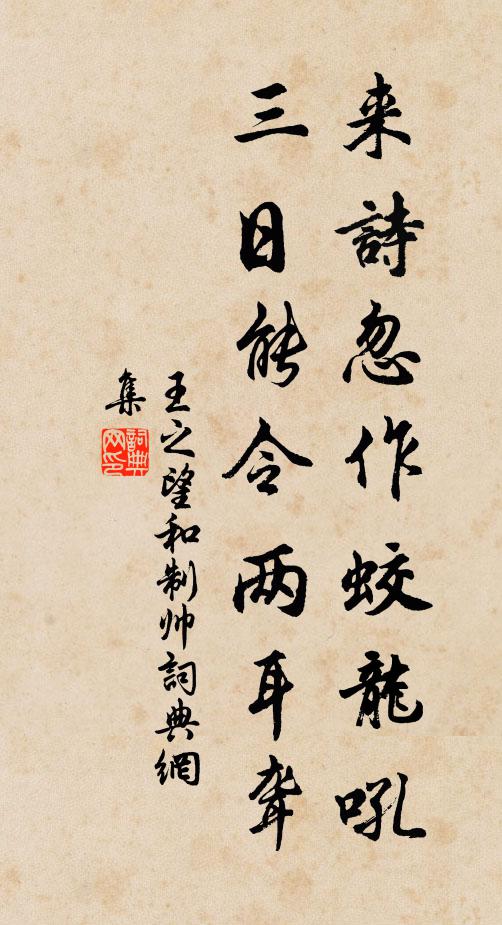 来詩忽作蛟龍吼
三日能令两耳聾
王之望和制帅詞典網
集
詞典网印